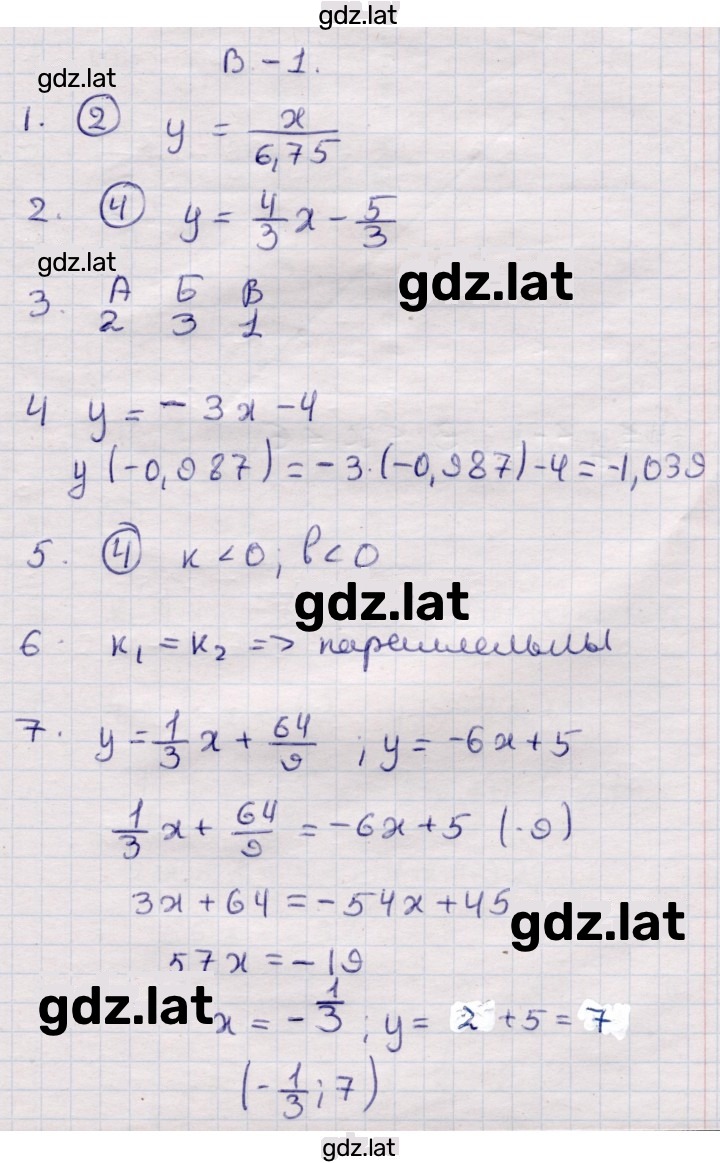 gdz.lat
gdz.lat
В - 1.
1. ② y = x/6,75
2. ④ y = 4/3 x - 5/3
gdz.lat
gdz.lat
3. А Б В
2 3 1
4 y = - 3x - 4
y (-0,987) = -3·(-0,987) - 4 = -1,039
5. ④ к < 0; b < 0
gdz.lat
6. к₁ = к₂ => параллельны
7. y = 1/3 x + 64/9 ; y = -6x + 5
1/3 x + 64/9 = -6x + 5 (·9)
3x + 64 = -54x + 45
gdz.lat
57x = -19
gdz.lat
x = - 1/3 ; y = 2 + 5 = 7
(- 1/3 ; 7)
gdz.lat